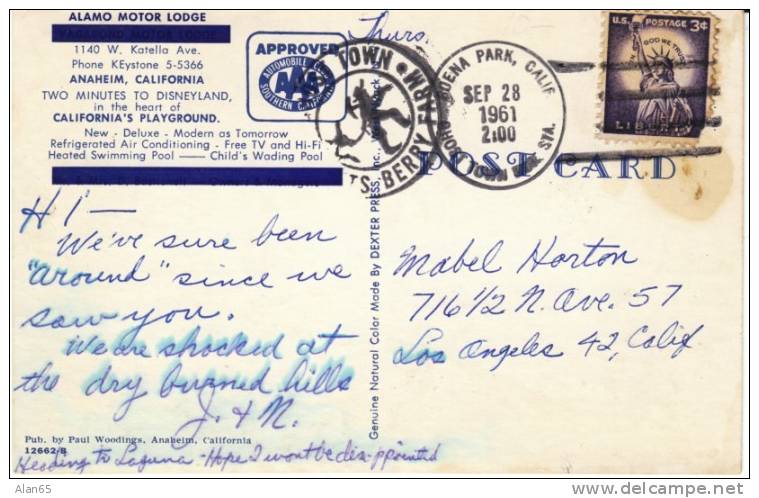 ALAMO MOTOR LODGE
1140 W. Katella Ave.
Phone KEystone 5-5366
ANAHEIM, CALIFORNIA
TWO MINUTES TO DISNEYLAND,
in the heart of
CALIFORNIA'S PLAYGROUND.
New - Deluxe - Modern as Tomorrow
Refrigerated Air Conditioning - Free TV and Hi-Fi
Heated Swimming Pool —— Child's Wading Pool
APPROVED
AUTOMOBILE
AAA
SOUTHERN CALIFORNIA
Thurs.
TOWN • BERRY FARM
BUENA PARK, CALIF.
SEP 28
1961
2:00
TOWN STA.
U.S. POSTAGE 3¢
IN GOD WE TRUST
LIBERTY
POST CARD
HI —
We've sure been
"around" since we
saw you.
We are shocked at
the dry burned hills
J. & N.
Heading to Laguna - Hope I wont be dis-ppointed
Pub. by Paul Woodings, Anaheim, California
12662-B
Genuine Natural Color Made By DEXTER PRESS, Inc.
Mabel Horton
716 1/2 N. Ave. 57
Los Angeles 42, Calif
Alan65
www.delcampe.net